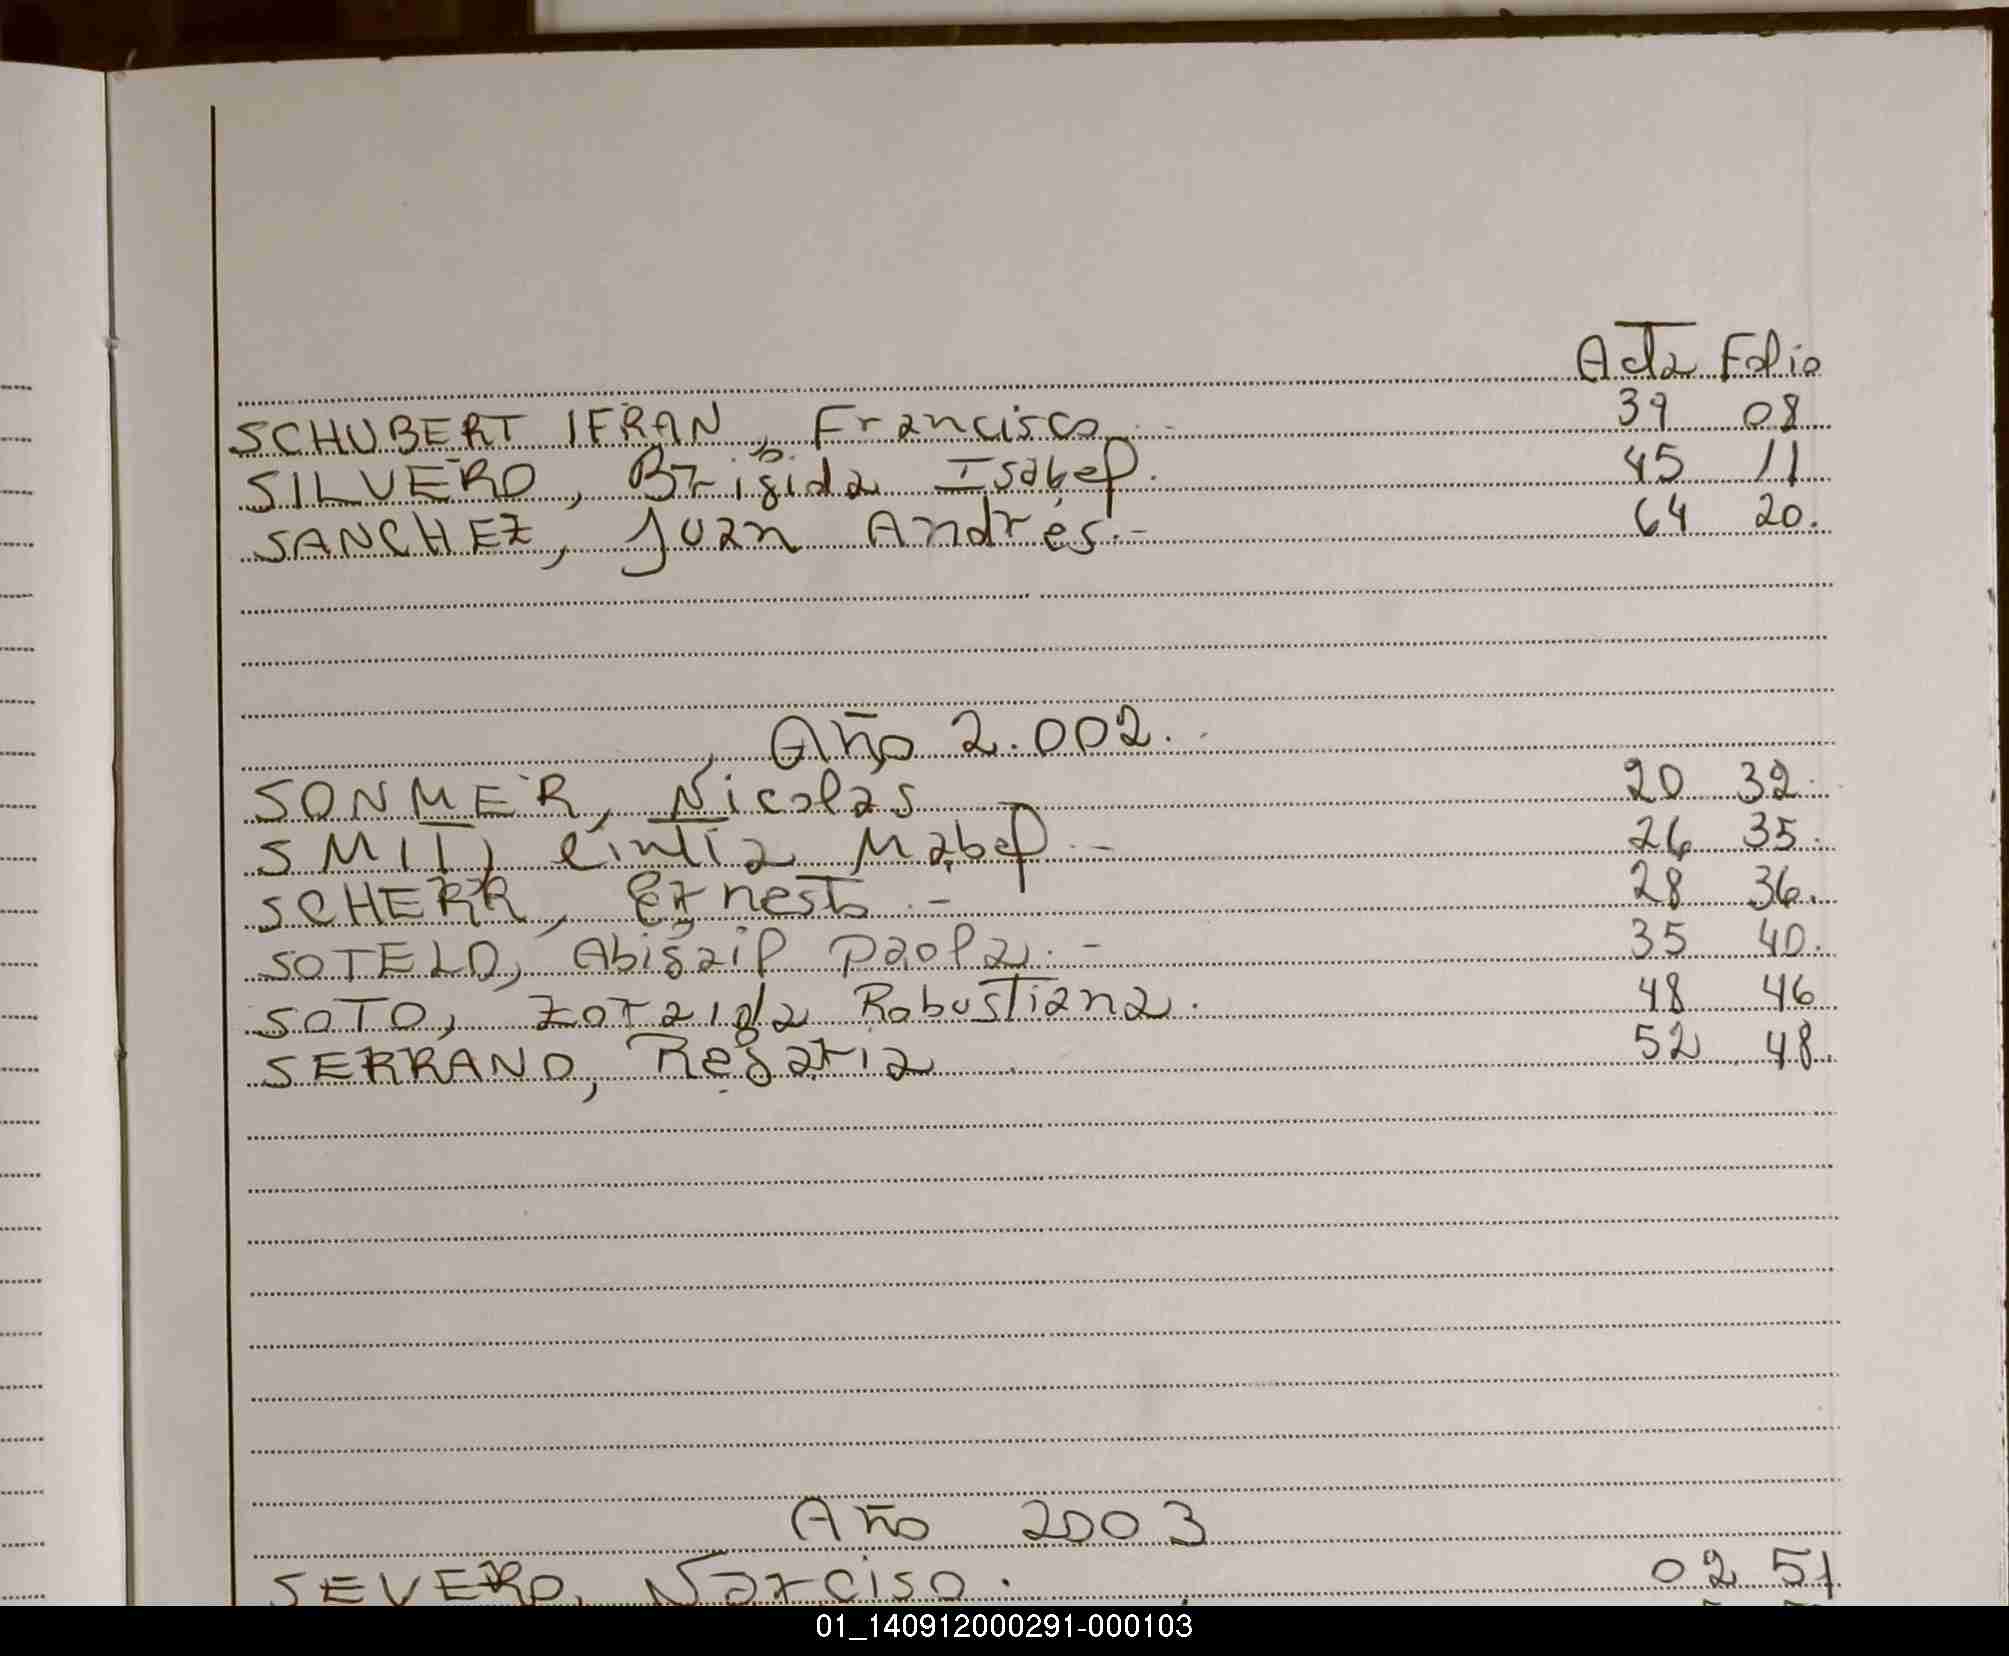 Acta Folio
SCHUBERT IFRAN, Francisco. 39 08
SILVERO, Brigida Isabel. 45 11
SANCHEZ, Juan Andrés.- 64 20.
Año 2.002.
SONMER, Nicolas 20 32.
SMIT, Cintia Mabel.- 26 35.
SCHERR, Ernesto.- 28 36.
SOTELO, Abigail Paola.- 35 40.
SOTO, Zoraida Robustiana. 48 46
SERRANO, Regaria 52 48.
Año 2003
SEVERO, Narciso. 02 51
01_140912000291-000103